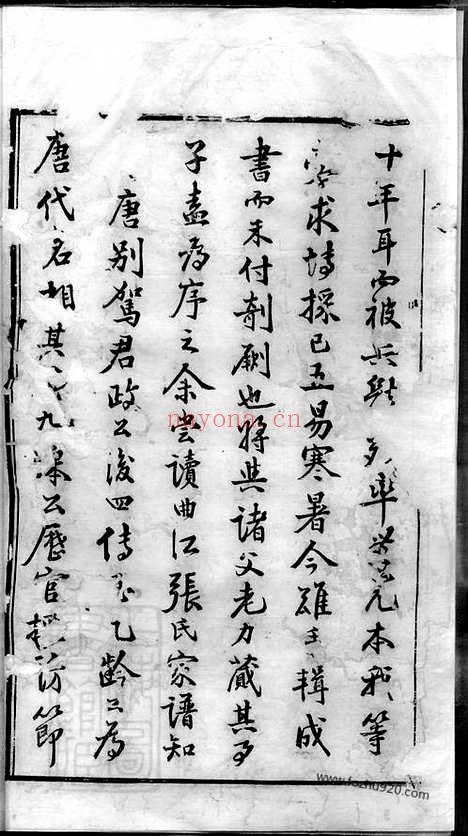 十年耳而被兵燹 多率 其元本我等
求博採已五易寒暑今雖 輯成
書而未付剞劂也將與諸父老力藏其事
子盍為序之余嘗讀曲江張氏家譜知
唐別駕君政公後四傳 九齡公為
唐代名相其 九皋公歷官 訪節
nayona.cn
www.fozhu920.com